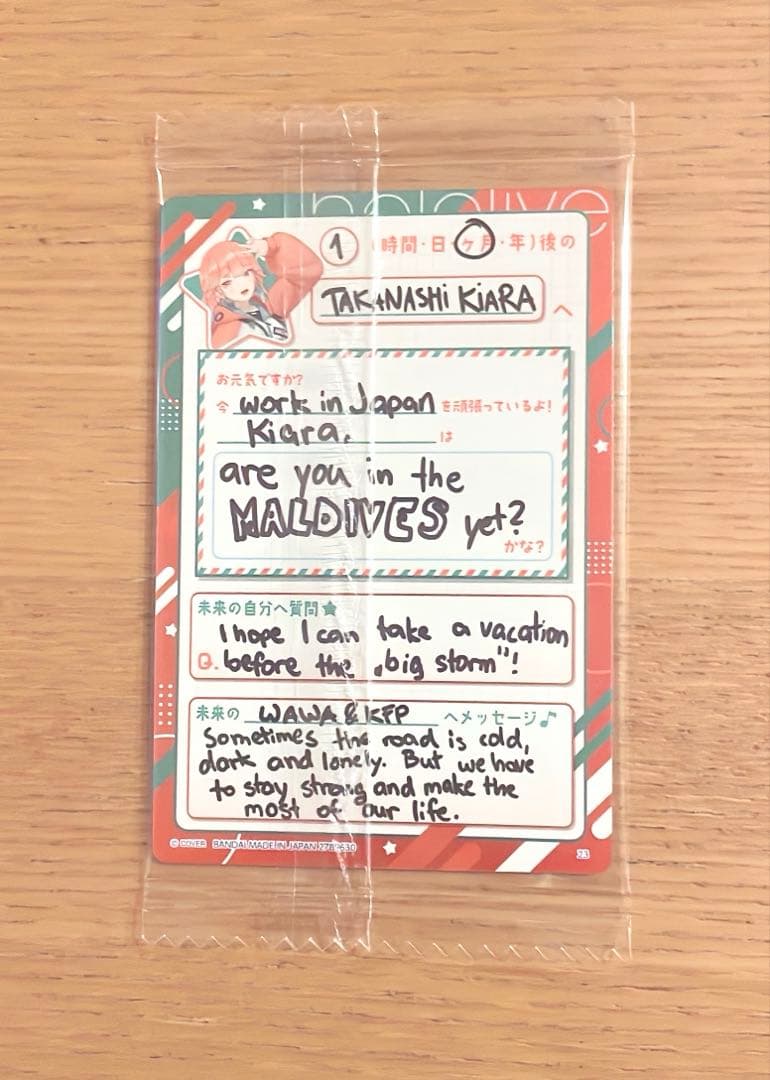 hololive
1 (時間・日・ヶ月・年)後の
TAKANASHI KIARA へ
お元気ですか?
今 work in Japan を頑張っているよ!
Kiara, は
are you in the
MALDIVES yet?
かな?
未来の自分へ質問★
I hope I can take a vacation
Q. before the „big storm"!
未来の WAWA & KFP へメッセージ♪
Sometimes the road is cold,
dark and lonely. But we have
to stay strong and make the
most of our life.
© COVER BANDAI MADE IN JAPAN
23